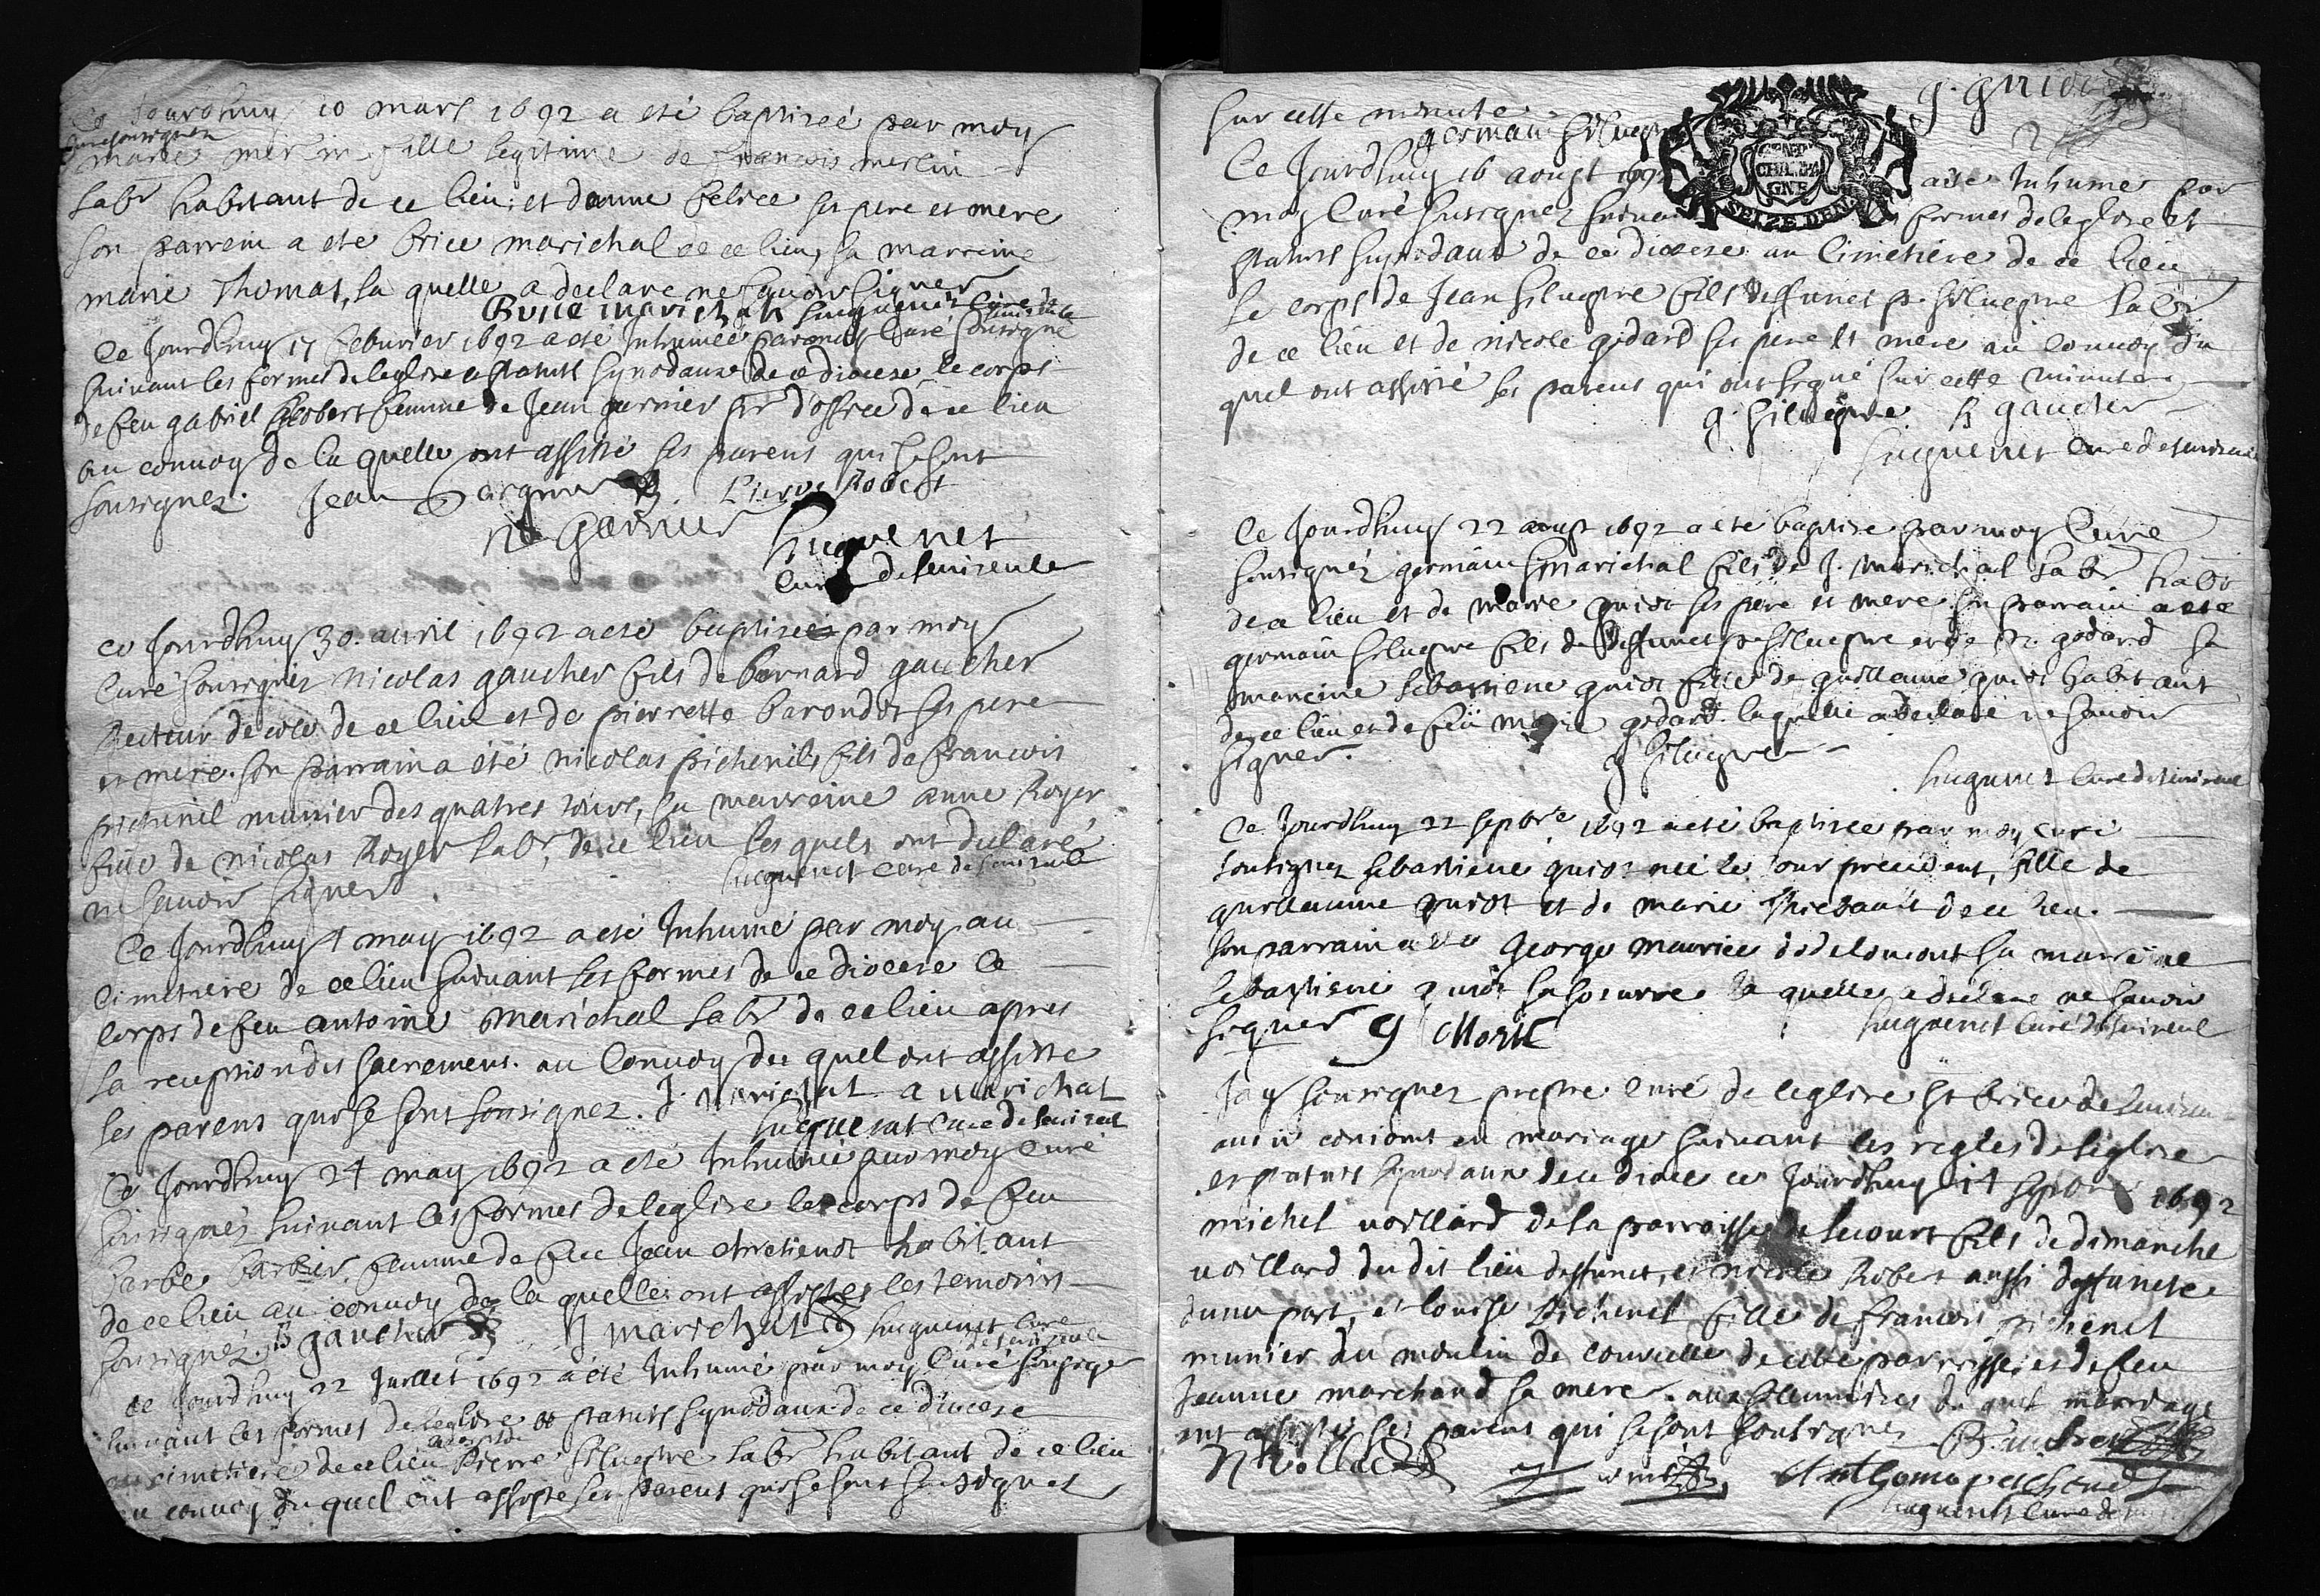 Ce Jourdhuy 10 mars 1692 a esté baptiseé par moy
Curé sousignez
marie merlin fille legitime de francois merlin
labr habitant de ce lieu et danne felice ses pere et mere
son parrein a esté brice marichal de ce lieu, sa marreine
marie Thomas, la quelle a declare ne scavoir signer
Brice marichal huguenet Curé de
Ce Jourdhuy 17 feburier 1692 a esté Inhumeé par moy Curé sousigné
suivant les formes de leglise et statuts synodaux de ce diocese, le corps
de feu gabriel Robert femme de Jean garnier d'office de ce lieu
au convoy de la quelle ont assisté ses parens qui se sont
sousignez. Jean Pierre Robert
N garnier huguenet
Curé de
ce Jourdhuy 30. avril 1692 a esté baptiseé par moy
Curé sousignez nicolas gaucher fils de bernard gaucher
Recteur decole de ce lieu et de pierrette barondot ses pere
et mere. son parrain a été nicolas pichenet, fils de francois
pichenet munier des quatres, sa marreine anne Royer
fille de nicolas Royer labr, de ce lieu les quels ont declaré
ne scavoir signer huguenet curé de
Ce Jourdhuy 4 may 1692 a esté Inhumé par moy au
Cimetiere de ce lieu suivant les formes de ce diocese le
corps de feu antoine marichal labr de ce lieu apres
la reception des sacremens. au Convoy du quel ont assisté
les parens qui se sont sousignez. J. marichal a marichal
huguenet Curé de
Ce Jourdhuy 24 may 1692 a esté Inhumeé par moy Curé
sousignez suivant les formes de leglise le corps de feu
barbe barbier femme de feu Jean chretienot habitant
de ce lieu au convoy de la quelle ont assistes les temoins
sousignez. B gaucher J marichal huguenet Curé
ce Jourdhuy 22 Juillet 1692 a esté Inhumé par moy Curé sousigné
suivant les formes de leglise et statuts synodaux de ce diocese
le corps de
au cimetiere de ce lieu Pierre siluestre labr habitant de ce lieu
au convoy du quel ont assisté ses parens qui se sont sousignez
sur cette minute. g. guiot
germain siluestre 2
Ce Jourdhuy 16 aougt 1692 a esté Inhumé par
moy Curé sousignez suivant formes de leglise et
GENER
CHALON
GNE
SEIZE DEN
statuts synodaux de ce diocese au Cimetiere de ce lieu
le corps de Jean siluestre fils deffunct p. siluestre labr
de ce lieu et de nicole godard ses pere et mere au convoy du
quel ont assisté ses parens qui ont signé sur cette minute
g. siluestre B gaucher
huguenet Curé de
Ce Jourdhuy 22 aougt 1692 a esté baptisé par moy Curé
sousignez germain marichal fils de J. marichal labr habt
de ce lieu et de marie guiot ses pere et mere son parrain a esté
germain siluestre fils de deffunct p siluestre et de n. godard sa
mareine sebastiene guiot fille de guillaume guiot habitant
de ce lieu et de feu marie godard. laquelle a declaré ne scavoir
signer. g siluestre
huguenet Curé de
Ce Jourdhuy 22 sepbre 1692 a esté baptisée par moy curé
sousignez sebastiene guiot neé le Jour precedent, fille de
guillaume guiot et de marie Thiebault de ce lieu.
son parrain a esté George maurice sa marreine
sebastiene guiot sa soeur la quelle a declaré ne scavoir
signer g huguenet Curé de
Jay sousignez prestre curé de leglise st brice de
conioint en mariage suivant les regles de leglise
et statuts synodaux de ce diocese ce Jourdhuy 14 sepbre 1692
michel voillard de la parroisse de lecourt fils de dimanche
voillard du dit lieu deffunct, et nicole Robert aussi deffuncte
dune part, et louise pichenet fille de francois pichenet
munier du moulin de de cette parroisse et de feu
Jeanne marchand sa mere. aux solemnités du quel mariage
ont assistés ses parens qui se sont sousignez
huguenet Curé de